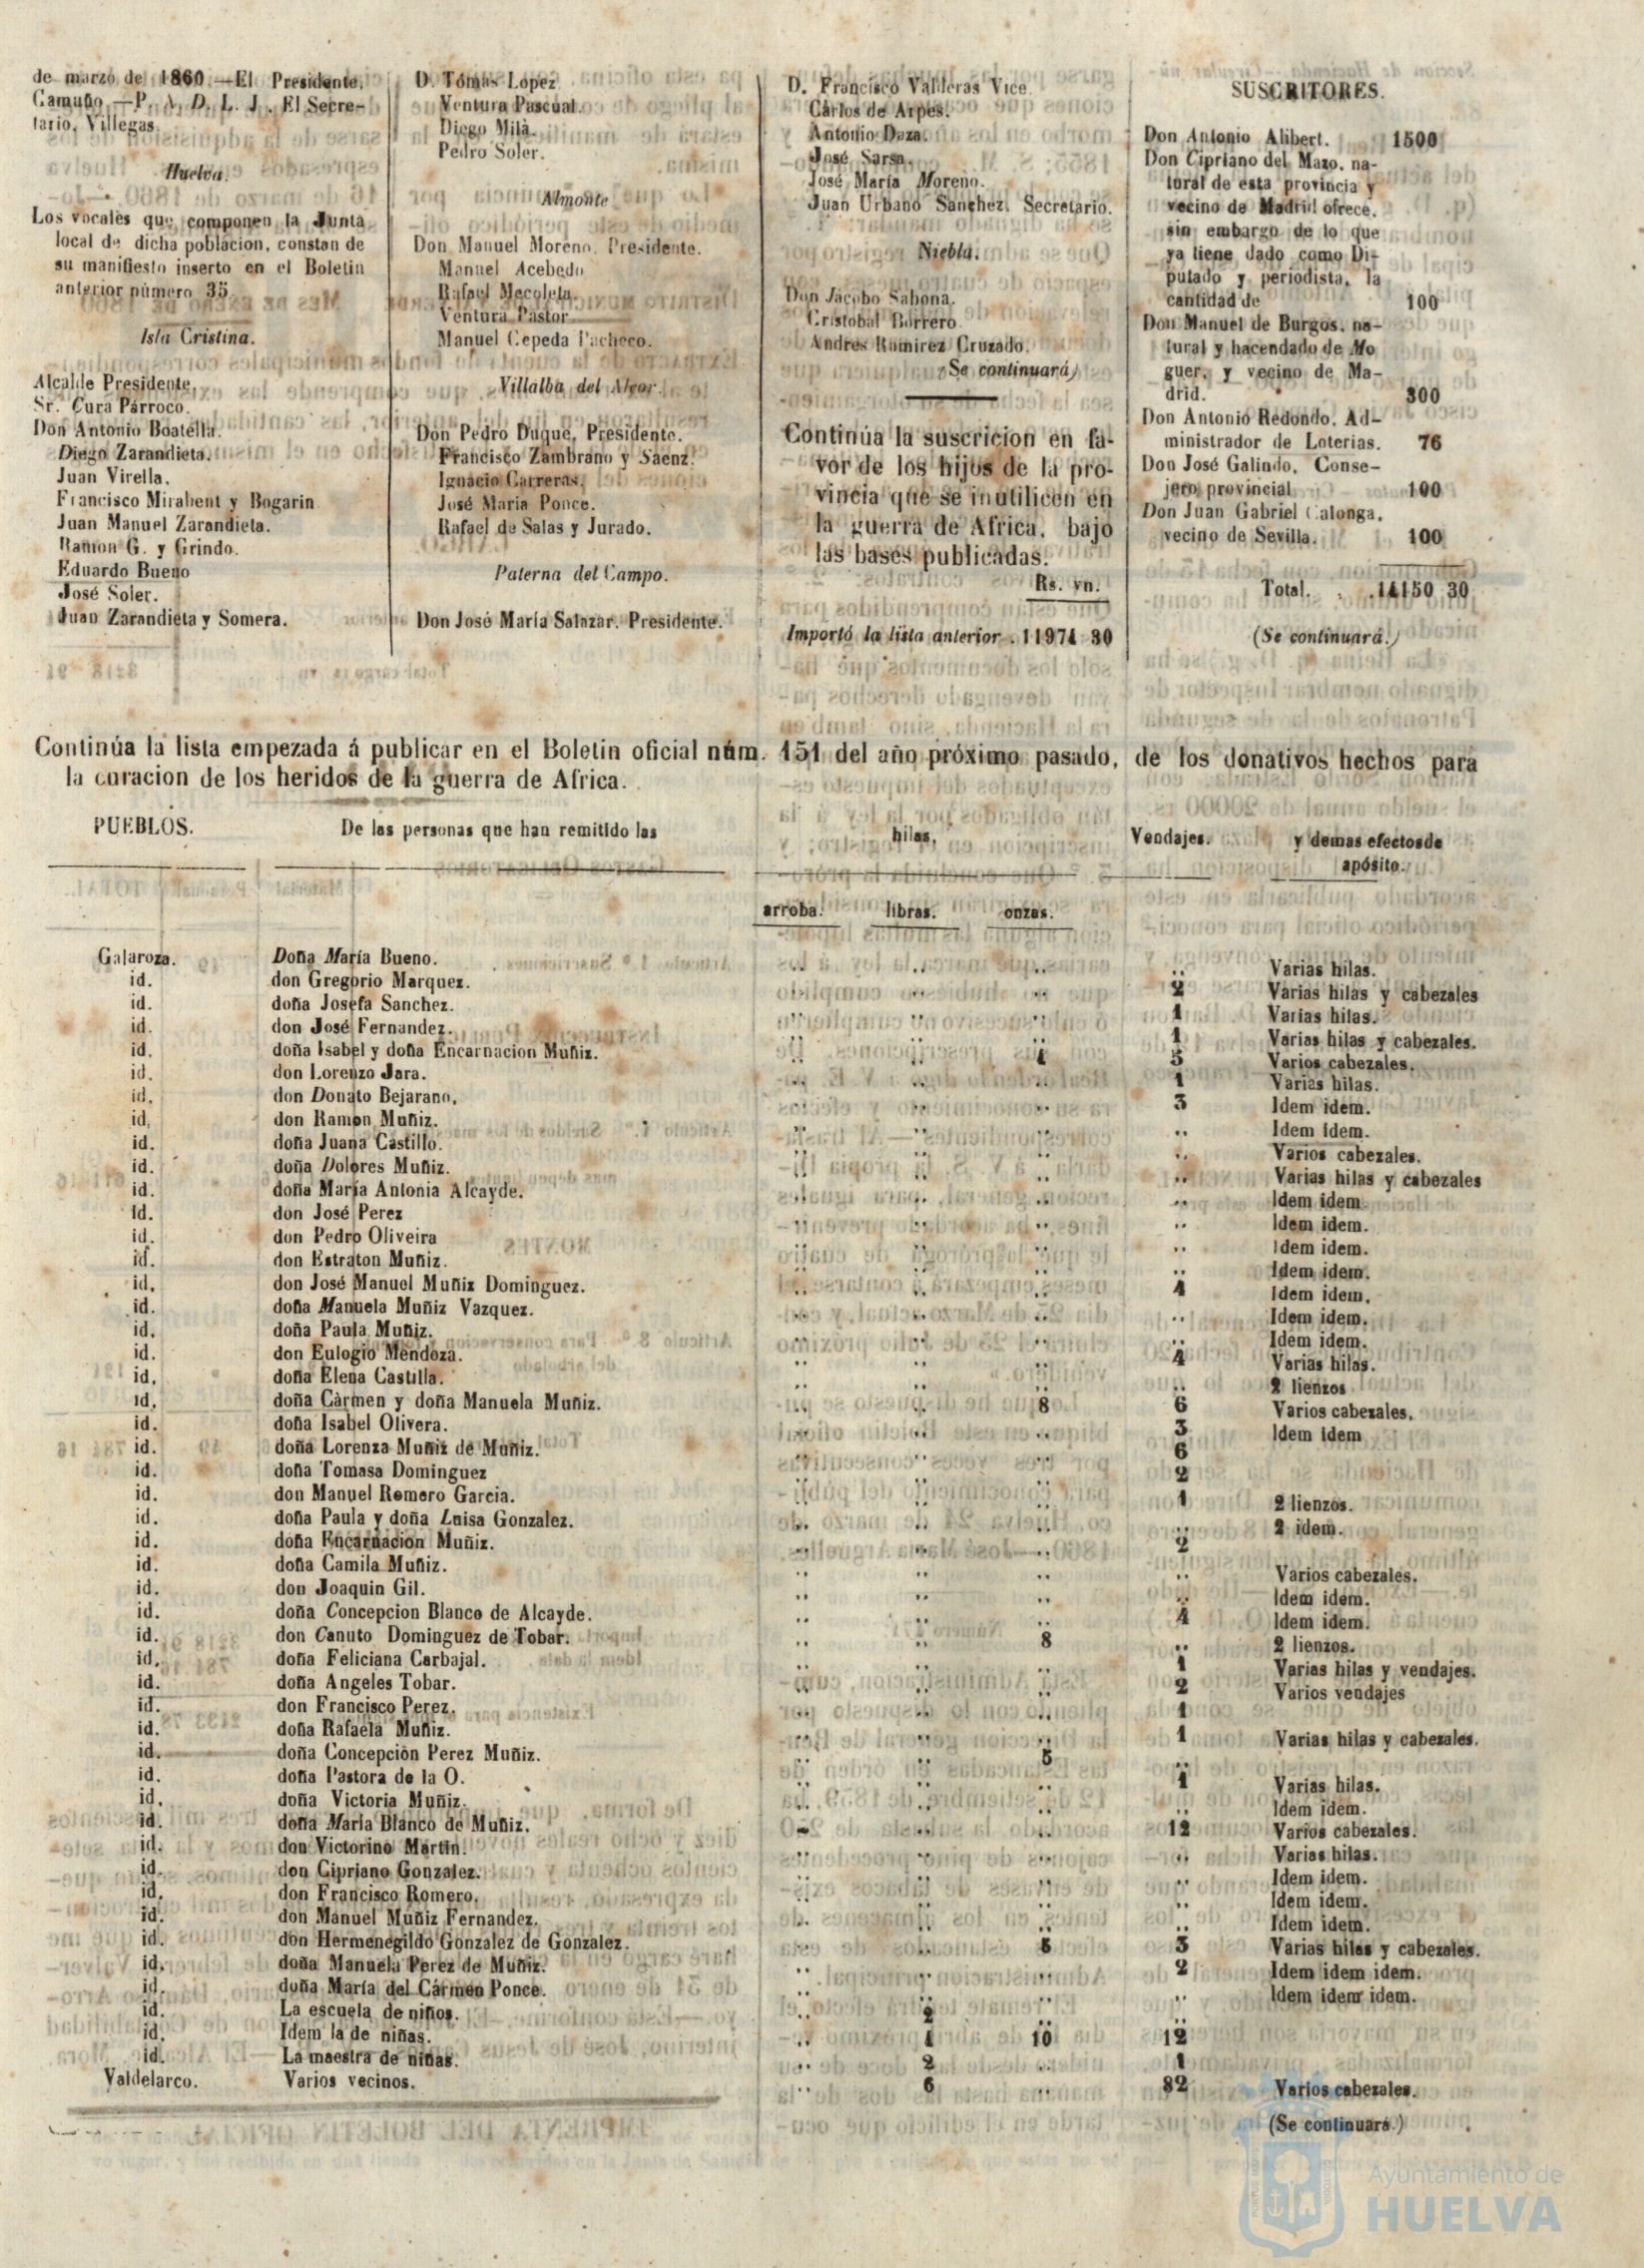 de marzo de 1860.—El Presidente,
Camuño.—P. A. D. L. J. El Secre-
tario, Villegas.
Huelva.
Los vocales que componen la Junta
local de dicha poblacion, constan de
su manifiesto inserto en el Boletin
anterior número 35.
Isla Cristina.
Alcalde Presidente.
Sr. Cura Párroco.
Don Antonio Boatella.
Diego Zarandieta.
Juan Virella.
Francisco Mirabent y Bogarin
Juan Manuel Zarandieta.
Ramon G. y Grindo.
Eduardo Bueno
José Soler.
Juan Zarandieta y Somera.
D. Tómas Lopez
Ventura Pascual.
Diego Milà.
Pedro Soler.
Almonte
Don Manuel Moreno, Presidente.
Manuel Acebedo
Rafael Mecoleta.
Ventura Pastor
Manuel Cepeda Pacheco.
Villalba del Alcor.
Don Pedro Duque, Presidente.
Francisco Zambrano y Saenz.
Ignacio Carreras.
José Maria Ponce.
Rafael de Salas y Jurado.
Paterna del Campo.
Don José María Salazar, Presidente.
D. Francisco Valderas Vice
Cárlos de Arpes.
Antonio Daza.
José Sarsa.
José María Moreno.
Juan Urbano Sanchez, Secretario.
Niebla.
Don Jacobo Sabona.
Cristobal Borrero
Andres Ramirez Cruzado.
(Se continuará)
Continúa la suscricion en fa-
vor de los hijos de la pro-
vincia que se inutilicen en
la guerra de Africa, bajo
las bases publicadas.
Rs. vn.
Importó la lista anterior . 11974 30
SUSCRITORES.
Don Antonio Alibert. 1500
Don Cipriano del Mazo, na-
tural de esta provincia y
vecino de Madrid ofrece,
sin embargo de lo que
ya tiene dado como Di-
putado y periodista, la
cantidad de 100
Don Manuel de Burgos, na-
tural y hacendado de Mo
guer, y vecino de Ma-
drid. 300
Don Antonio Redondo, Ad-
ministrador de Loterias. 76
Don José Galindo, Conse-
jero provincial 100
Don Juan Gabriel Calonga,
vecino de Sevilla. 100
Total. . . 14150 30
(Se continuará.)
Continúa la lista empezada á publicar en el Boletin oficial núm. 151 del año próximo pasado, de los donativos hechos para
la curacion de los heridos de la guerra de Africa.
PUEBLOS. De las personas que han remitido las hilas, Vendajes. y demas efectos de
apósito.
arroba. libras. onzas.
Galaroza. Doña María Bueno. .. .. .. .. Varias hilas.
id. don Gregorio Marquez. .. .. .. 2 Varias hilas y cabezales
id. doña Josefa Sanchez. .. .. .. 1 Varias hilas.
id. don José Fernandez. .. .. .. 1 Varias hilas y cabezales.
id. doña Isabel y doña Encarnacion Muñiz. .. .. 4 5 Varios cabezales.
id. don Lorenzo Jara. .. .. .. 1 Varias hilas.
id. don Donato Bejarano, .. .. .. 3 Idem idem.
id. don Ramon Muñiz. .. .. .. .. Idem idem.
id. doña Juana Castillo. .. .. .. .. Varios cabezales.
id. doña Dolores Muñiz. .. .. .. .. Varias hilas y cabezales
id. doña María Antonia Alcayde. .. .. .. .. Idem idem
id. don José Perez .. .. .. .. Idem idem.
id. don Pedro Oliveira .. .. .. .. Idem idem.
id. don Estraton Muñiz. .. .. .. .. Idem idem.
id. don José Manuel Muñiz Dominguez. .. .. .. 4 Idem idem.
id. doña Manuela Muñiz Vazquez. .. .. .. .. Idem idem.
id. doña Paula Muñiz. .. .. .. .. Idem idem.
id. don Eulogio Mendoza. .. .. .. 4 Varias hilas.
id. doña Elena Castilla. .. .. .. .. 2 lienzos
id. doña Càrmen y doña Manuela Muñiz. .. .. 8 6 Varios cabezales.
id. doña Isabel Olivera. .. .. .. 3 Idem idem
id. doña Lorenza Muñiz de Muñiz. .. .. .. 6
id. doña Tomasa Dominguez .. .. .. 2
id. don Manuel Romero Garcia. .. .. .. 1 2 lienzos.
id. doña Paula y doña Luisa Gonzalez. .. .. .. .. 2 idem.
id. doña Encarnacion Muñiz. .. .. .. 2
id. doña Camila Muñiz. .. .. .. .. Varios cabezales.
id. don Joaquin Gil. .. .. .. .. Idem idem.
id. doña Concepcion Blanco de Alcayde. .. .. .. 4 Idem idem.
id. don Canuto Dominguez de Tobar. .. .. 8 .. 2 lienzos.
id. doña Feliciana Carbajal. .. .. .. 1 Varias hilas y vendajes.
id. doña Angeles Tobar. .. .. .. 2 Varios vendajes
id. don Francisco Perez. .. .. .. 1
id. doña Rafaela Muñiz. .. .. .. 1 Varias hilas y cabezales.
id. doña Concepción Perez Muñiz. .. .. 5 ..
id. doña Pastora de la O. .. .. .. 1 Varias hilas.
id. doña Victoria Muñiz. .. .. .. .. Idem idem.
id. doña María Blanco de Muñiz. .. .. .. 12 Varios cabezales.
id. don Victorino Martin. .. .. .. .. Varias hilas.
id. don Cipriano Gonzalez. .. .. .. .. Idem idem.
id. don Francisco Romero. .. .. .. .. Idem idem.
id. don Manuel Muñiz Fernandez. .. .. .. .. Idem idem.
id. don Hermenegildo Gonzalez de Gonzalez. .. .. 5 3 Varias hilas y cabezales.
id. doña Manuela Perez de Muñiz. .. .. .. 2 Idem idem idem.
id. doña María del Cármen Ponce. .. .. .. .. Idem idem idem.
id. La escuela de niños. .. 2 .. ..
id. Idem la de niñas. .. 1 10 12
id. La maestra de niñas. .. 2 .. 1
Valdelarco. Varios vecinos. .. 6 .. 82 Varios cabezales.
(Se continuará.)
Ayuntamiento de
HUELVA